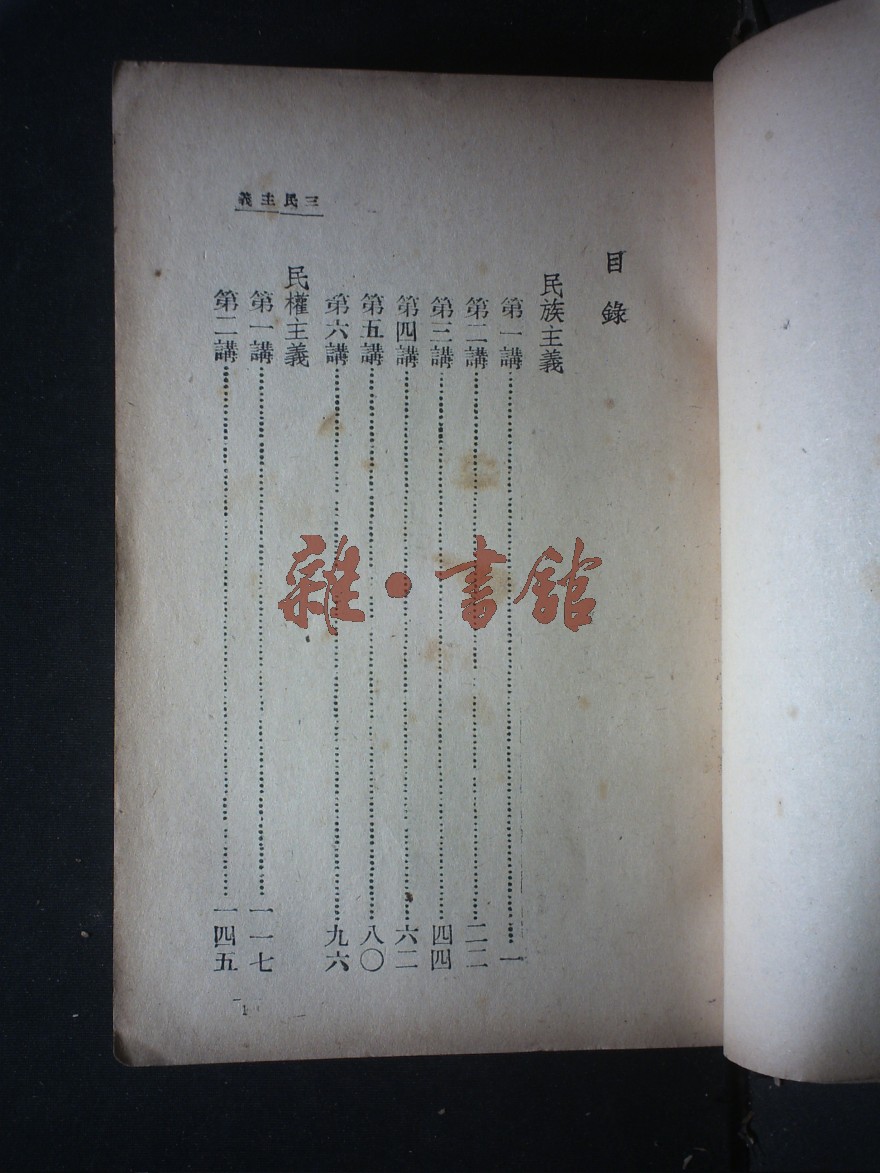 三民主義
目錄
民族主義
第一講……一
第二講……二二
第三講……四四
第四講……六二
第五講……八〇
第六講……九六
民權主義
第一講……一一七
第二講……一四五
1
雜·書館